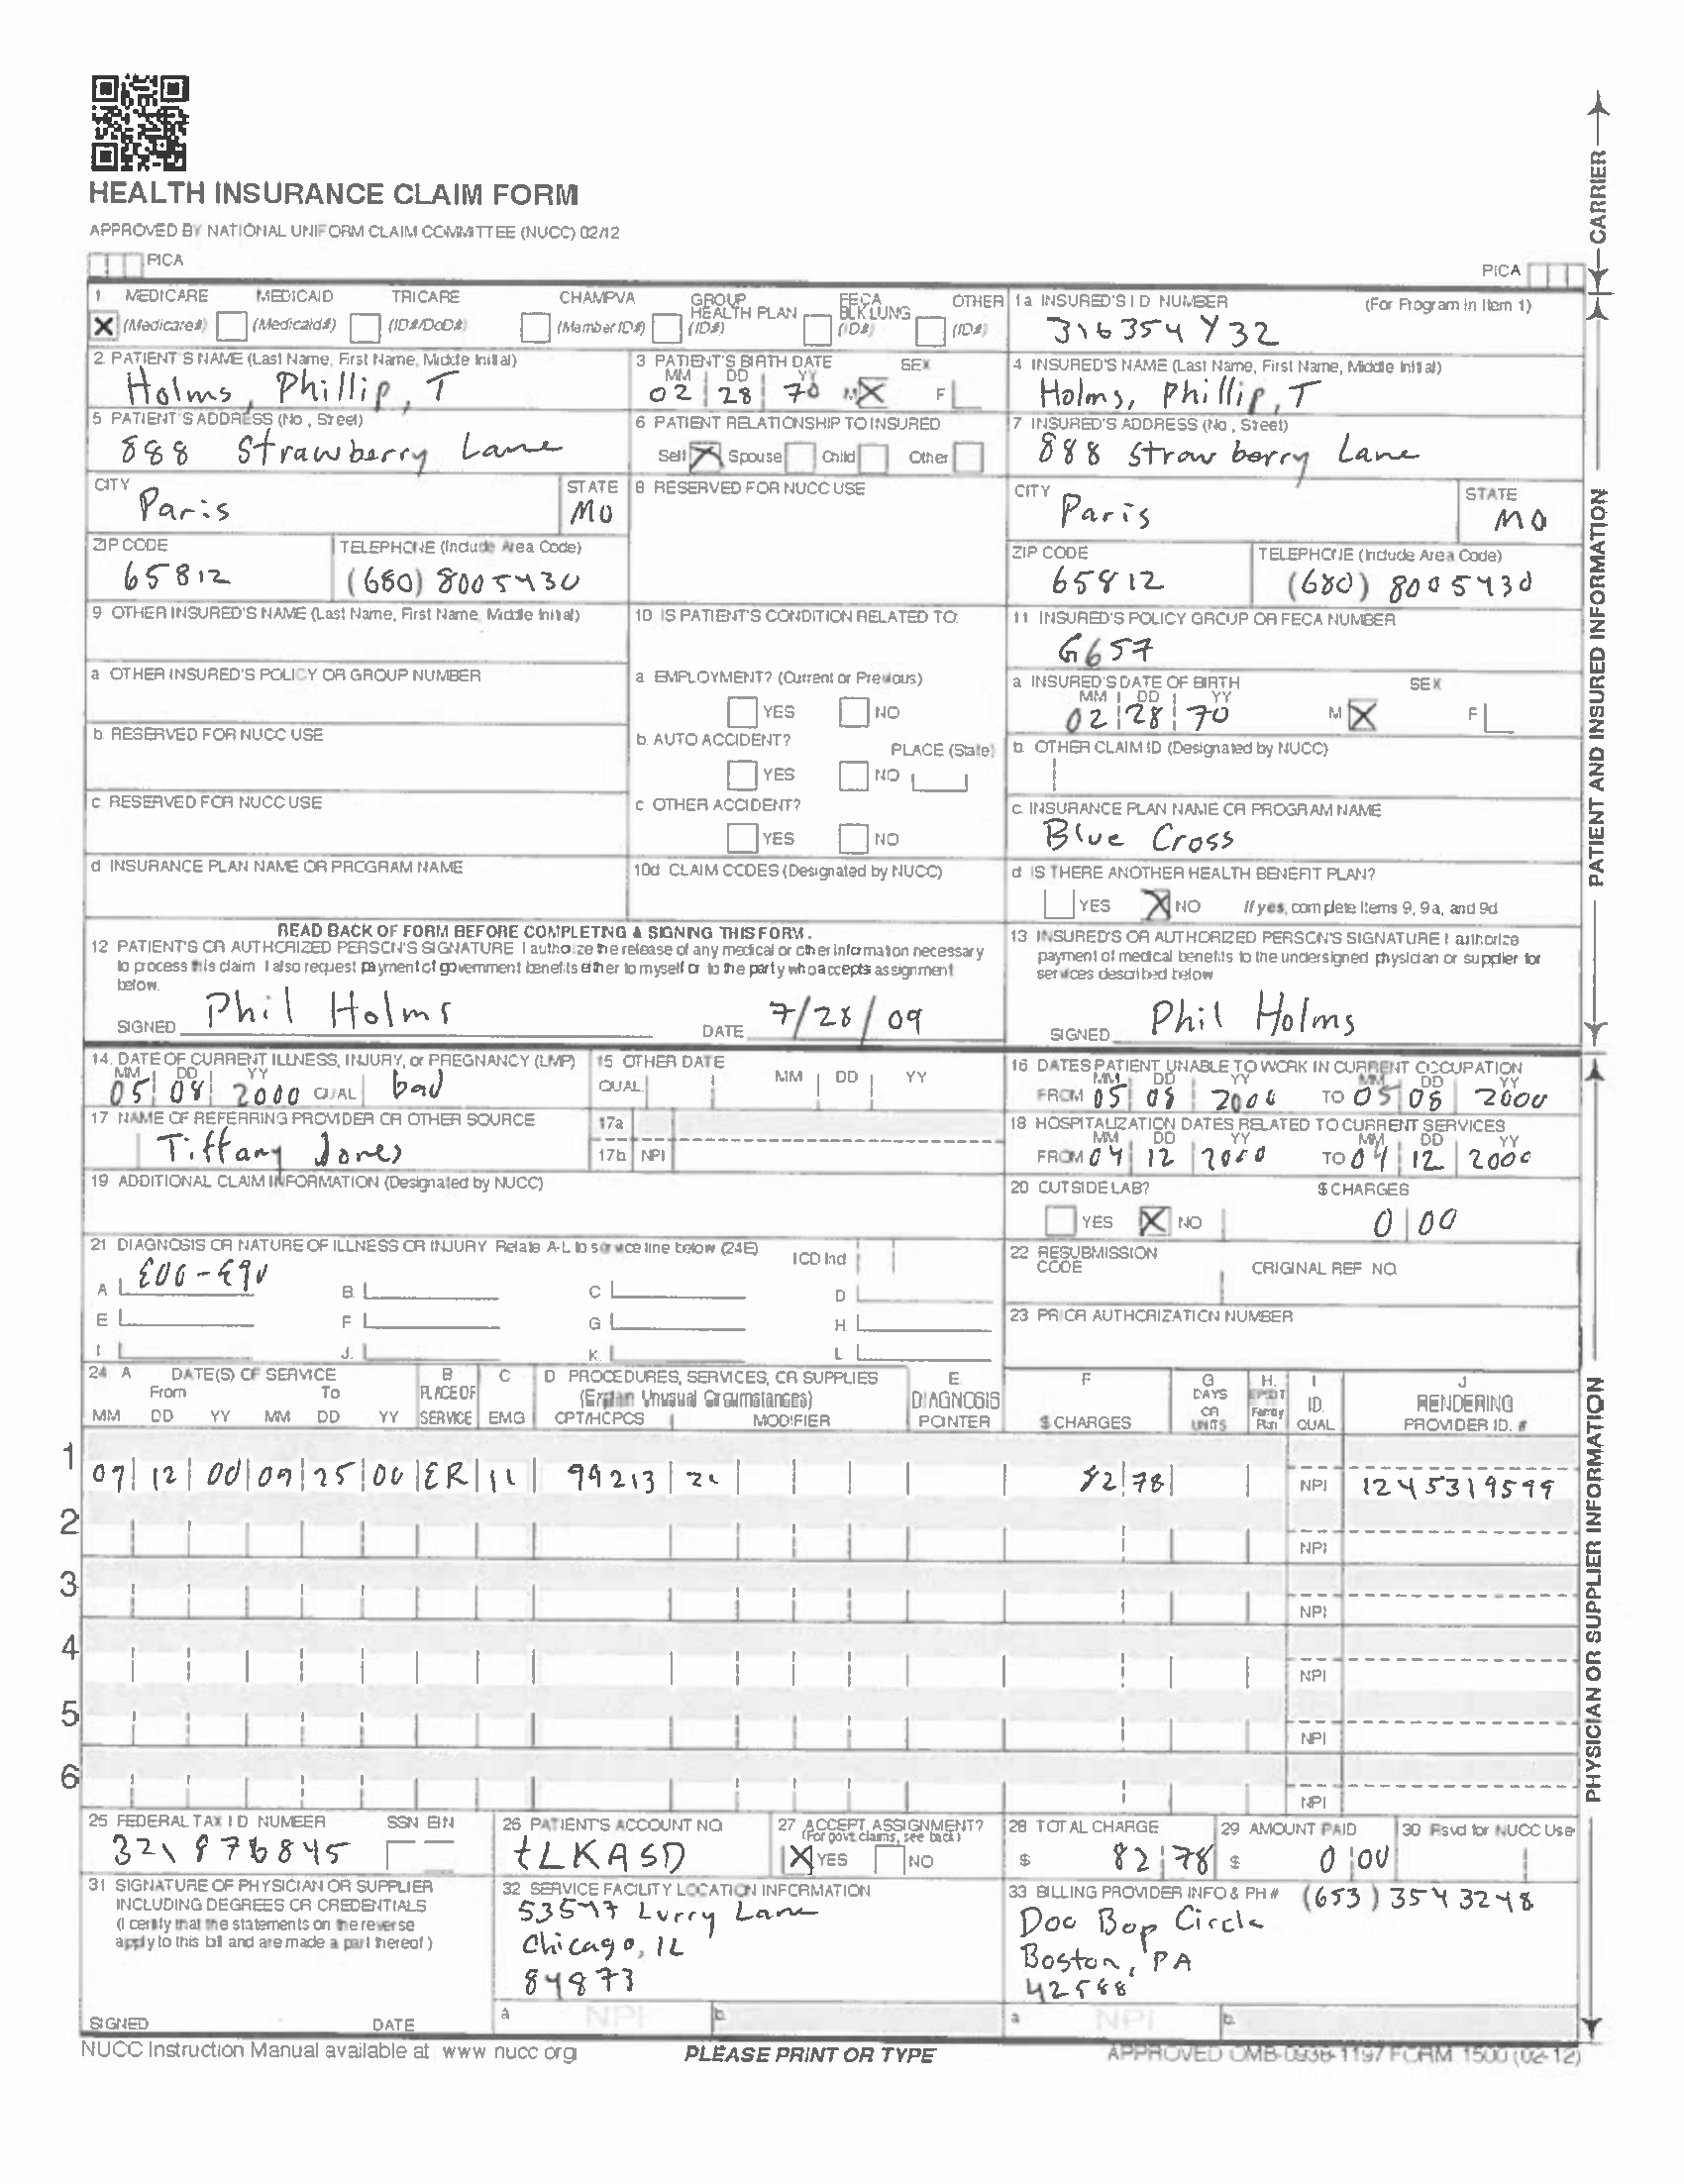 HEALTH INSURANCE CLAIM FORM
APPROVED BY NATIONAL UNIFORM CLAIM COMMITTEE (NUCC) 02/12
PICA
PICA
CARRIER
1 MEDICARE MEDICAID TRICARE CHAMPVA GROUP HEALTH PLAN FECA BLK LUNG OTHER
(Medicare#) (Medicaid#) (ID#/DoD#) (Member ID#) (ID#) (ID#) (ID#)
1a INSURED'S I D NUMBER (For Program in Item 1)
316354Y32
2 PATIENT'S NAME (Last Name, First Name, Middle Initial)
Holms, Phillip, T
3 PATIENT'S BIRTH DATE SEX
MM DD YY
02 28 70 M F
4 INSURED'S NAME (Last Name, First Name, Middle Initial)
Holms, Phillip, T
5 PATIENT'S ADDRESS (No , Street)
888 Strawberry Lane
6 PATIENT RELATIONSHIP TO INSURED
Self Spouse Child Other
7 INSURED'S ADDRESS (No , Street)
888 Strawberry Lane
CITY
Paris
STATE
MO
8 RESERVED FOR NUCC USE
CITY
Paris
STATE
MO
ZIP CODE
65812
TELEPHONE (Include Area Code)
(680) 8005430
ZIP CODE
65812
TELEPHONE (Include Area Code)
(680) 8005430
9 OTHER INSURED'S NAME (Last Name, First Name, Middle Initial)
10 IS PATIENT'S CONDITION RELATED TO:
11 INSURED'S POLICY GROUP OR FECA NUMBER
G657
a OTHER INSURED'S POLICY OR GROUP NUMBER
a EMPLOYMENT? (Current or Previous)
YES NO
a INSURED'S DATE OF BIRTH SEX
MM DD YY
02 28 70 M F
b. RESERVED FOR NUCC USE
b AUTO ACCIDENT? PLACE (State)
YES NO
b. OTHER CLAIM ID (Designated by NUCC)
c RESERVED FOR NUCC USE
c OTHER ACCIDENT?
YES NO
c. INSURANCE PLAN NAME OR PROGRAM NAME
Blue Cross
d INSURANCE PLAN NAME OR PROGRAM NAME
10d CLAIM CODES (Designated by NUCC)
d IS THERE ANOTHER HEALTH BENEFIT PLAN?
YES NO If yes, complete Items 9, 9a, and 9d
PATIENT AND INSURED INFORMATION
READ BACK OF FORM BEFORE COMPLETING & SIGNING THIS FORM.
12 PATIENT'S OR AUTHORIZED PERSON'S SIGNATURE I authorize the release of any medical or other information necessary
to process this claim I also request payment of government benefits either to myself or to the party who accepts assignment
below.
SIGNED Phil Holms DATE 7/28/09
13 INSURED'S OR AUTHORIZED PERSON'S SIGNATURE I authorize
payment of medical benefits to the undersigned physician or supplier for
services described below
SIGNED Phil Holms
14. DATE OF CURRENT ILLNESS, INJURY, or PREGNANCY (LMP)
MM DD YY
05 08 2000 QUAL bad
15 OTHER DATE
QUAL MM DD YY
16 DATES PATIENT UNABLE TO WORK IN CURRENT OCCUPATION
MM DD YY MM DD YY
FROM 05 08 2000 TO 05 08 2000
17 NAME OF REFERRING PROVIDER OR OTHER SOURCE
Tiffany Jones
17a
17b NPI
18 HOSPITALIZATION DATES RELATED TO CURRENT SERVICES
MM DD YY MM DD YY
FROM 04 12 2000 TO 04 12 2000
19 ADDITIONAL CLAIM INFORMATION (Designated by NUCC)
20 OUTSIDE LAB? $ CHARGES
YES NO 0 00
21 DIAGNOSIS OR NATURE OF ILLNESS OR INJURY Relate A-L to service line below (24E) ICD Ind
A E00-E90 B. C D
E F G H.
I. J. K. L
22 RESUBMISSION CODE ORIGINAL REF NO.
23 PRIOR AUTHORIZATION NUMBER
24 A DATE(S) OF SERVICE B C D PROCEDURES, SERVICES, OR SUPPLIES E. F G H. I J
From To PLACE OF (Explain Unusual Circumstances) DIAGNOSIS DAYS OR UNITS EPSDT Family Plan ID. RENDERING
MM DD YY MM DD YY SERVICE EMG CPT/HCPCS MODIFIER POINTER $ CHARGES QUAL PROVIDER ID. #
1 07 12 00 09 25 00 ER 11 99213 21 82 78 NPI 1245319599
2 NPI
3 NPI
4 NPI
5 NPI
6 NPI
25 FEDERAL TAX I D NUMBER SSN EIN
321876845
26 PATIENT'S ACCOUNT NO.
tLKASD
27 ACCEPT ASSIGNMENT?
(For govt. claims, see back)
YES NO
28 TOTAL CHARGE
$ 82 78
29 AMOUNT PAID
$ 0 00
30 Rsvd for NUCC Use
31 SIGNATURE OF PHYSICIAN OR SUPPLIER
INCLUDING DEGREES OR CREDENTIALS
(I certify that the statements on the reverse
apply to this bill and are made a part thereof )
SIGNED DATE
32 SERVICE FACILITY LOCATION INFORMATION
Lurry Lane
Chicago, IL
84873
a NPI b.
33 BILLING PROVIDER INFO & PH # (653) 3543248
Doo Bop Circle
Boston, PA
a NPI b.
PHYSICIAN OR SUPPLIER INFORMATION
NUCC Instruction Manual available at www nucc org
PLEASE PRINT OR TYPE
APPROVED OMB-0938-1197 FORM 1500 (02-12)